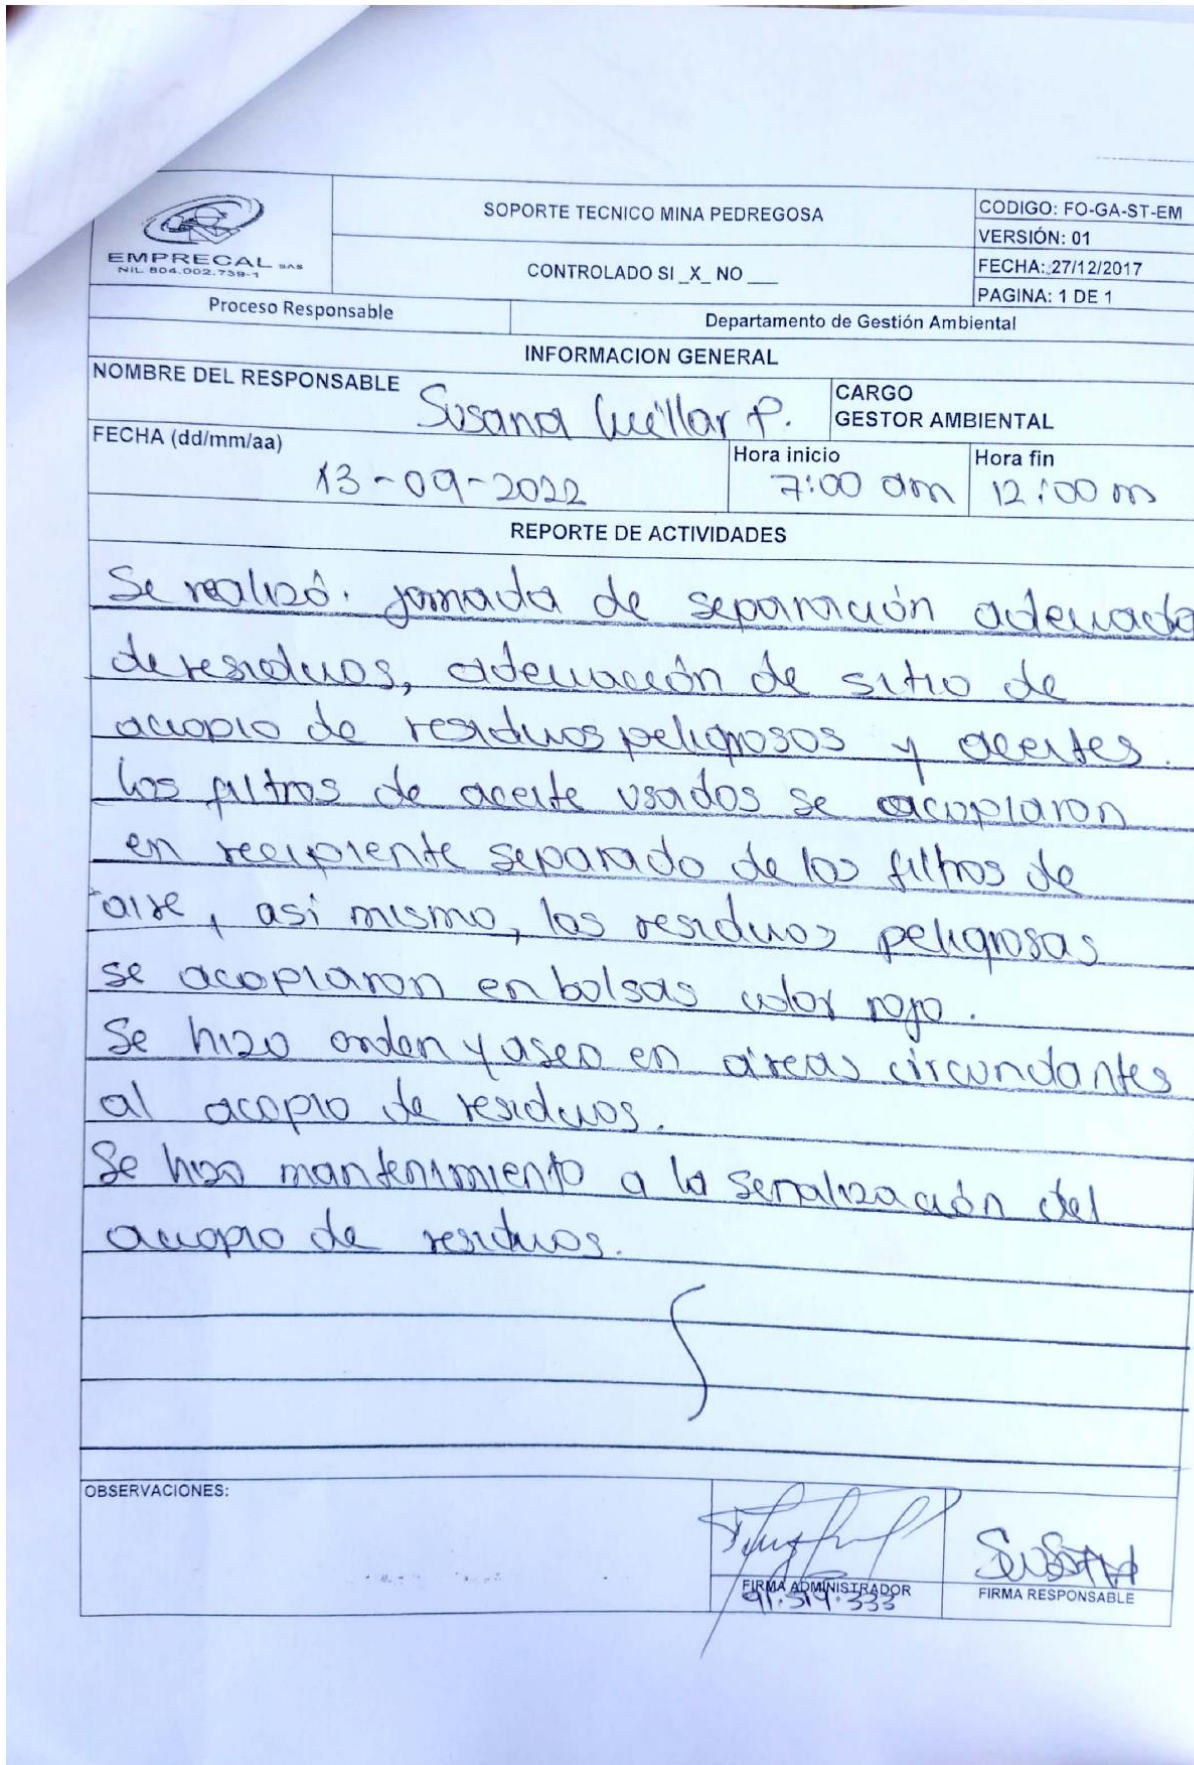 EMPRECAL SAS
NIL. 804.002.739-1
SOPORTE TECNICO MINA PEDREGOSA
CONTROLADO SI _X_ NO ___
CODIGO: FO-GA-ST-EM
VERSIÓN: 01
FECHA: 27/12/2017
PAGINA: 1 DE 1
Proceso Responsable
Departamento de Gestión Ambiental
INFORMACION GENERAL
NOMBRE DEL RESPONSABLE Susana Cuéllar P.
CARGO
GESTOR AMBIENTAL
FECHA (dd/mm/aa)
13-09-2022
Hora inicio
7:00 am
Hora fin
12:00 m
REPORTE DE ACTIVIDADES
Se realizó. jornada de separación adecuada
de residuos, adecuación de sitio de
acopio de residuos peligrosos y aceites.
Los filtros de aceite usados se acopiaron
en recipiente separado de los filtros de
aire, así mismo, los residuos peligrosas
se acopiaron en bolsas color rojo.
Se hizo orden y aseo en áreas circundantes
al acopio de residuos.
Se hizo mantenimiento a la señalización del
acopio de residuos.
OBSERVACIONES:
FIRMA ADMINISTRADOR
91.519.333
FIRMA RESPONSABLE